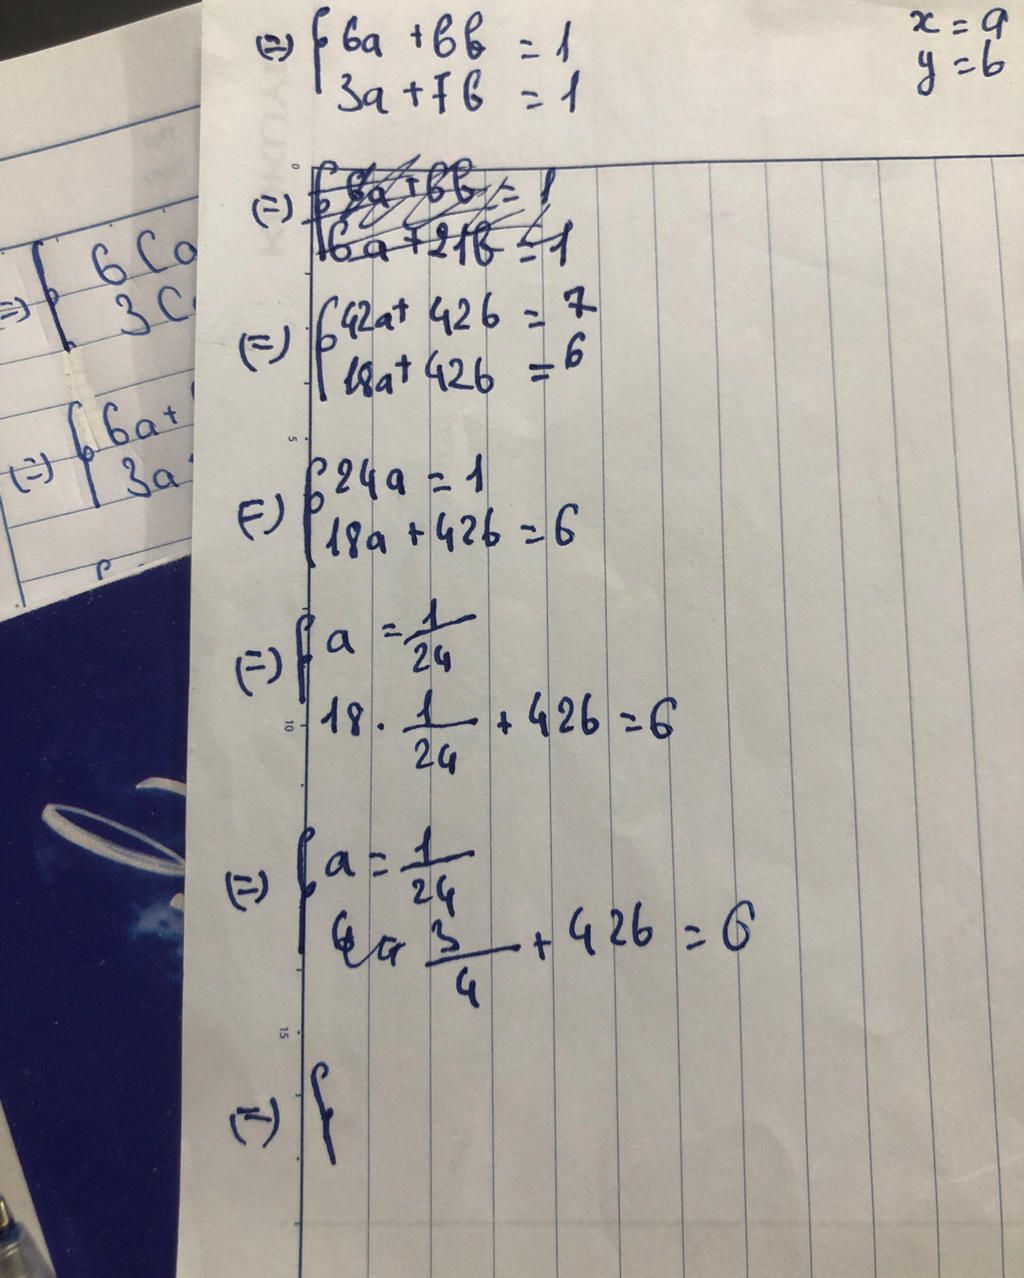 (=) { 6a + 6b = 1
3a + 7b = 1
x = a
y = b
(=) { 6a + 6b = 1
6a + 21b = 1
(=) { 42a + 42b = 7
18a + 42b = 6
(=) { 24a = 1
18a + 42b = 6
(=) { a = 1/24
18 . 1/24 + 42b = 6
(=) { a = 1/24
3/4 + 42b = 6
(=) {
=) { 6(a
3(
(=) { 6a +
3a
0
5
10
15